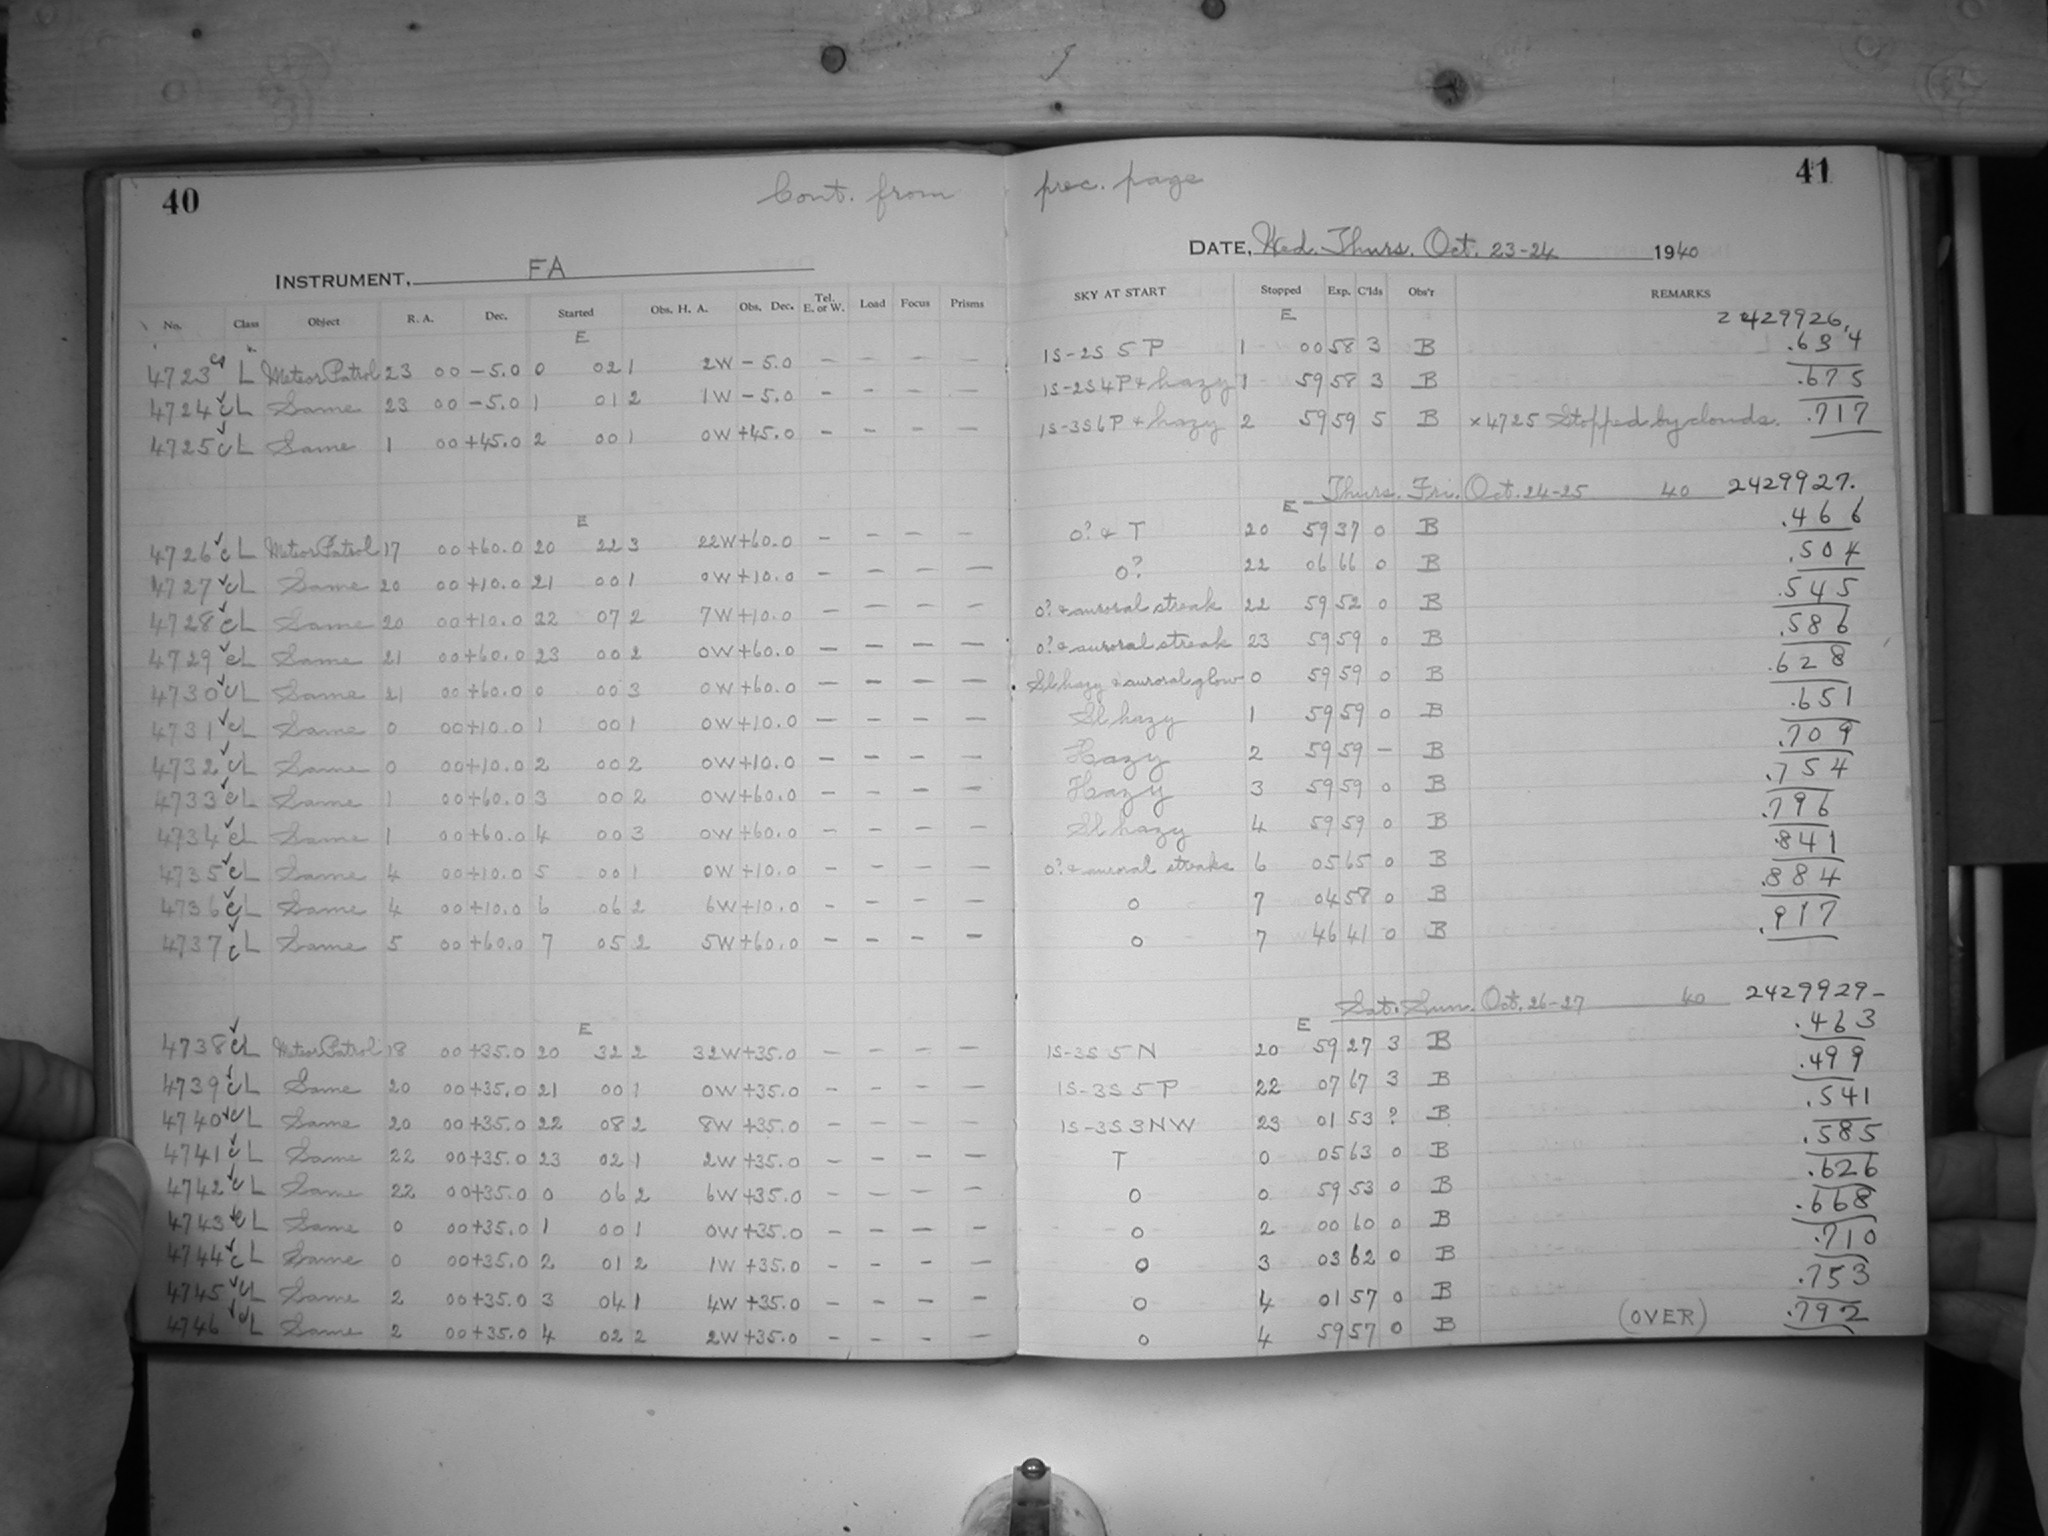 40
Cont. from prec. page
41
INSTRUMENT, FA
DATE, Wed. Thurs. Oct. 23-24 1940
No. Class Object R. A. Dec. Started Obs. H. A. Obs. Dec. Tel. E. or W. Load Focus Prisms SKY AT START Stopped Exp. C'lds Obs'r REMARKS
E E 2429926.
4723 L Meteor Patrol 23 00 -5.0 0 02 1 2W -5.0 — — — — 1S-2S 5 P 1 00 58 3 B .634
4724 c L Same 23 00 -5.0 1 01 2 1W -5.0 — — — — 1S-2S4P + hazy 1 59 58 3 B .675
4725 c L Same 1 00 +45.0 2 00 1 0W +45.0 — — — — 1S-3S6P + hazy 2 59 59 5 B ×4725 Stopped by clouds. .717
Thurs. Fri. Oct. 24-25 40 2429927.
E E
4726 c L Meteor Patrol 17 00 +60.0 20 22 3 22W +60.0 — — — — 0? + T 20 59 37 0 B .466
4727 c L Same 20 00 +10.0 21 00 1 0W +10.0 — — — — 0? 22 06 66 0 B .504
4728 c L Same 20 00 +10.0 22 07 2 7W +10.0 — — — — 0? + auroral streak 22 59 52 0 B .545
4729 c L Same 21 00 +60.0 23 00 2 0W +60.0 — — — — 0? + auroral streak 23 59 59 0 B .586
4730 c L Same 21 00 +60.0 0 00 3 0W +60.0 — — — — Sl hazy + auroral glow 0 59 59 0 B .628
4731 c L Same 0 00 +10.0 1 00 1 0W +10.0 — — — — Sl hazy 1 59 59 0 B .651
4732 c L Same 0 00 +10.0 2 00 2 0W +10.0 — — — — Hazy 2 59 59 — B .709
4733 c L Same 1 00 +60.0 3 00 2 0W +60.0 — — — — Hazy 3 59 59 0 B .754
4734 c L Same 1 00 +60.0 4 00 3 0W +60.0 — — — — Sl hazy 4 59 59 0 B .796
4735 c L Same 4 00 +10.0 5 00 1 0W +10.0 — — — — 0? + auroral streaks 6 05 65 0 B .841
4736 c L Same 4 00 +10.0 6 06 2 6W +10.0 — — — — 0 7 04 58 0 B .884
4737 c L Same 5 00 +60.0 7 05 2 5W +60.0 — — — — 0 7 46 41 0 B .917
Sat. Sun. Oct. 26-27 40 2429929-
E E
4738 c L Meteor Patrol 18 00 +35.0 20 32 2 32W +35.0 — — — — 1S-3S 5 N 20 59 27 3 B .463
4739 c L Same 20 00 +35.0 21 00 1 0W +35.0 — — — — 1S-3S 5 P 22 07 67 3 B .499
4740 c L Same 20 00 +35.0 22 08 2 8W +35.0 — — — — 1S-3S 3 NW 23 01 53 ? B .541
4741 c L Same 22 00 +35.0 23 02 1 2W +35.0 — — — — T 0 05 63 0 B .585
4742 c L Same 22 00 +35.0 0 06 2 6W +35.0 — — — — 0 0 59 53 0 B .626
4743 c L Same 0 00 +35.0 1 00 1 0W +35.0 — — — — 0 2 00 60 0 B .668
4744 c L Same 0 00 +35.0 2 01 2 1W +35.0 — — — — 0 3 03 62 0 B .710
4745 c L Same 2 00 +35.0 3 04 1 4W +35.0 — — — — 0 4 01 57 0 B .753
4746 c L Same 2 00 +35.0 4 02 2 2W +35.0 — — — — 0 4 59 57 0 B (OVER) .792